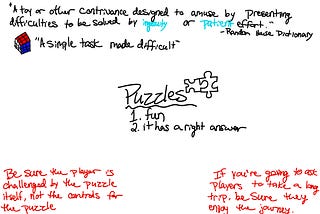 "A toy or other contrivance designed to amuse by presenting
difficulties to be solved by ingenuity or patient effort."
-Random House Dictionary
"A simple task made difficult"
Puzzles
1. fun
2. it has a right answer
Be sure the player is
challenged by the puzzle
itself, not the controls for
the puzzle
If you're going to ask
players to take a long
trip, be sure they
enjoy the journey.